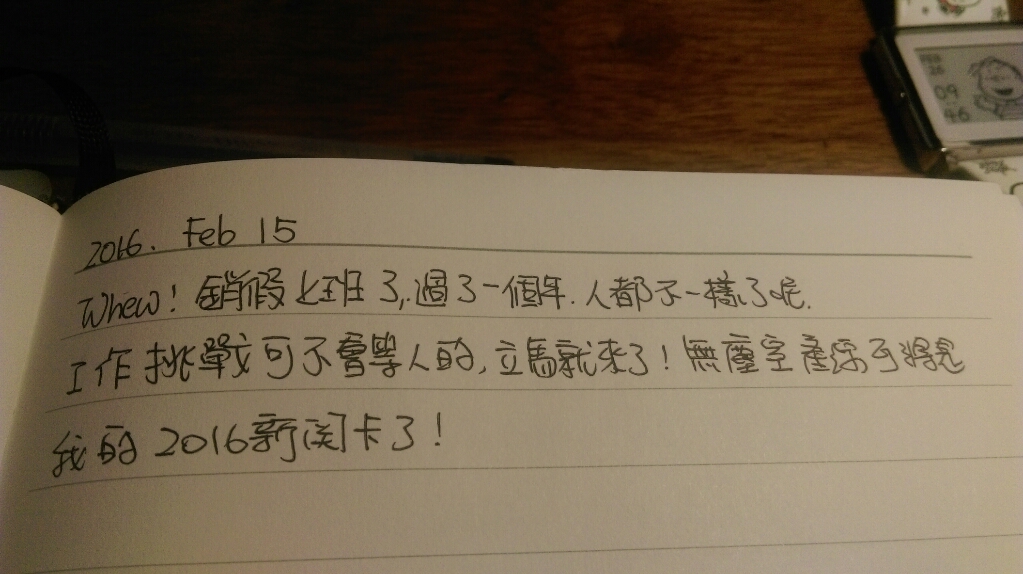 2016. Feb 15
Whew! 銷假上班了,過了一個年.人都不一樣了呢.
工作挑戰可不會等人的,立馬就來了!無塵室產線可將是
我的2016新関卡了!
09
46